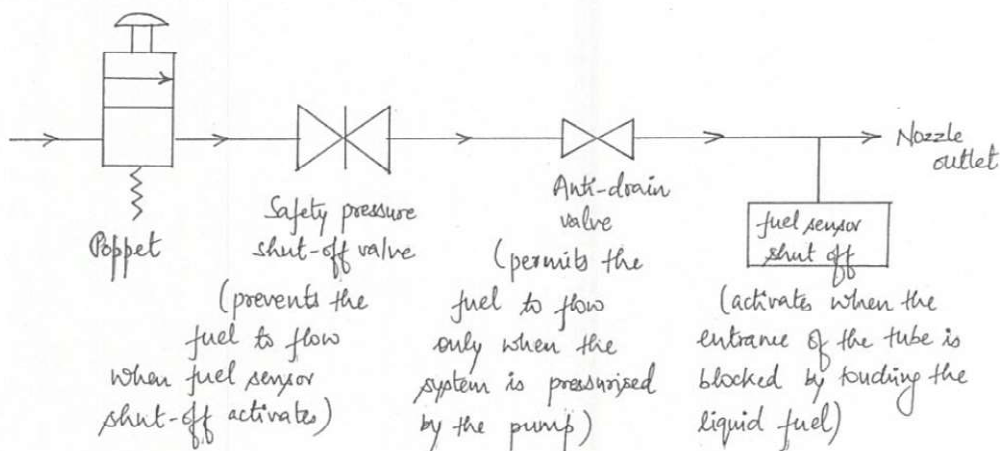 Nozzle
outlet
Poppet
Safety pressure
shut-off valve
(prevents the
fuel to flow
when fuel sensor
shut-off activates)
Anti-drain
valve
(permits the
fuel to flow
only when the
system is pressurised
by the pump)
fuel sensor
shut off
(activates when the
entrance of the tube is
blocked by touching the
liquid fuel)